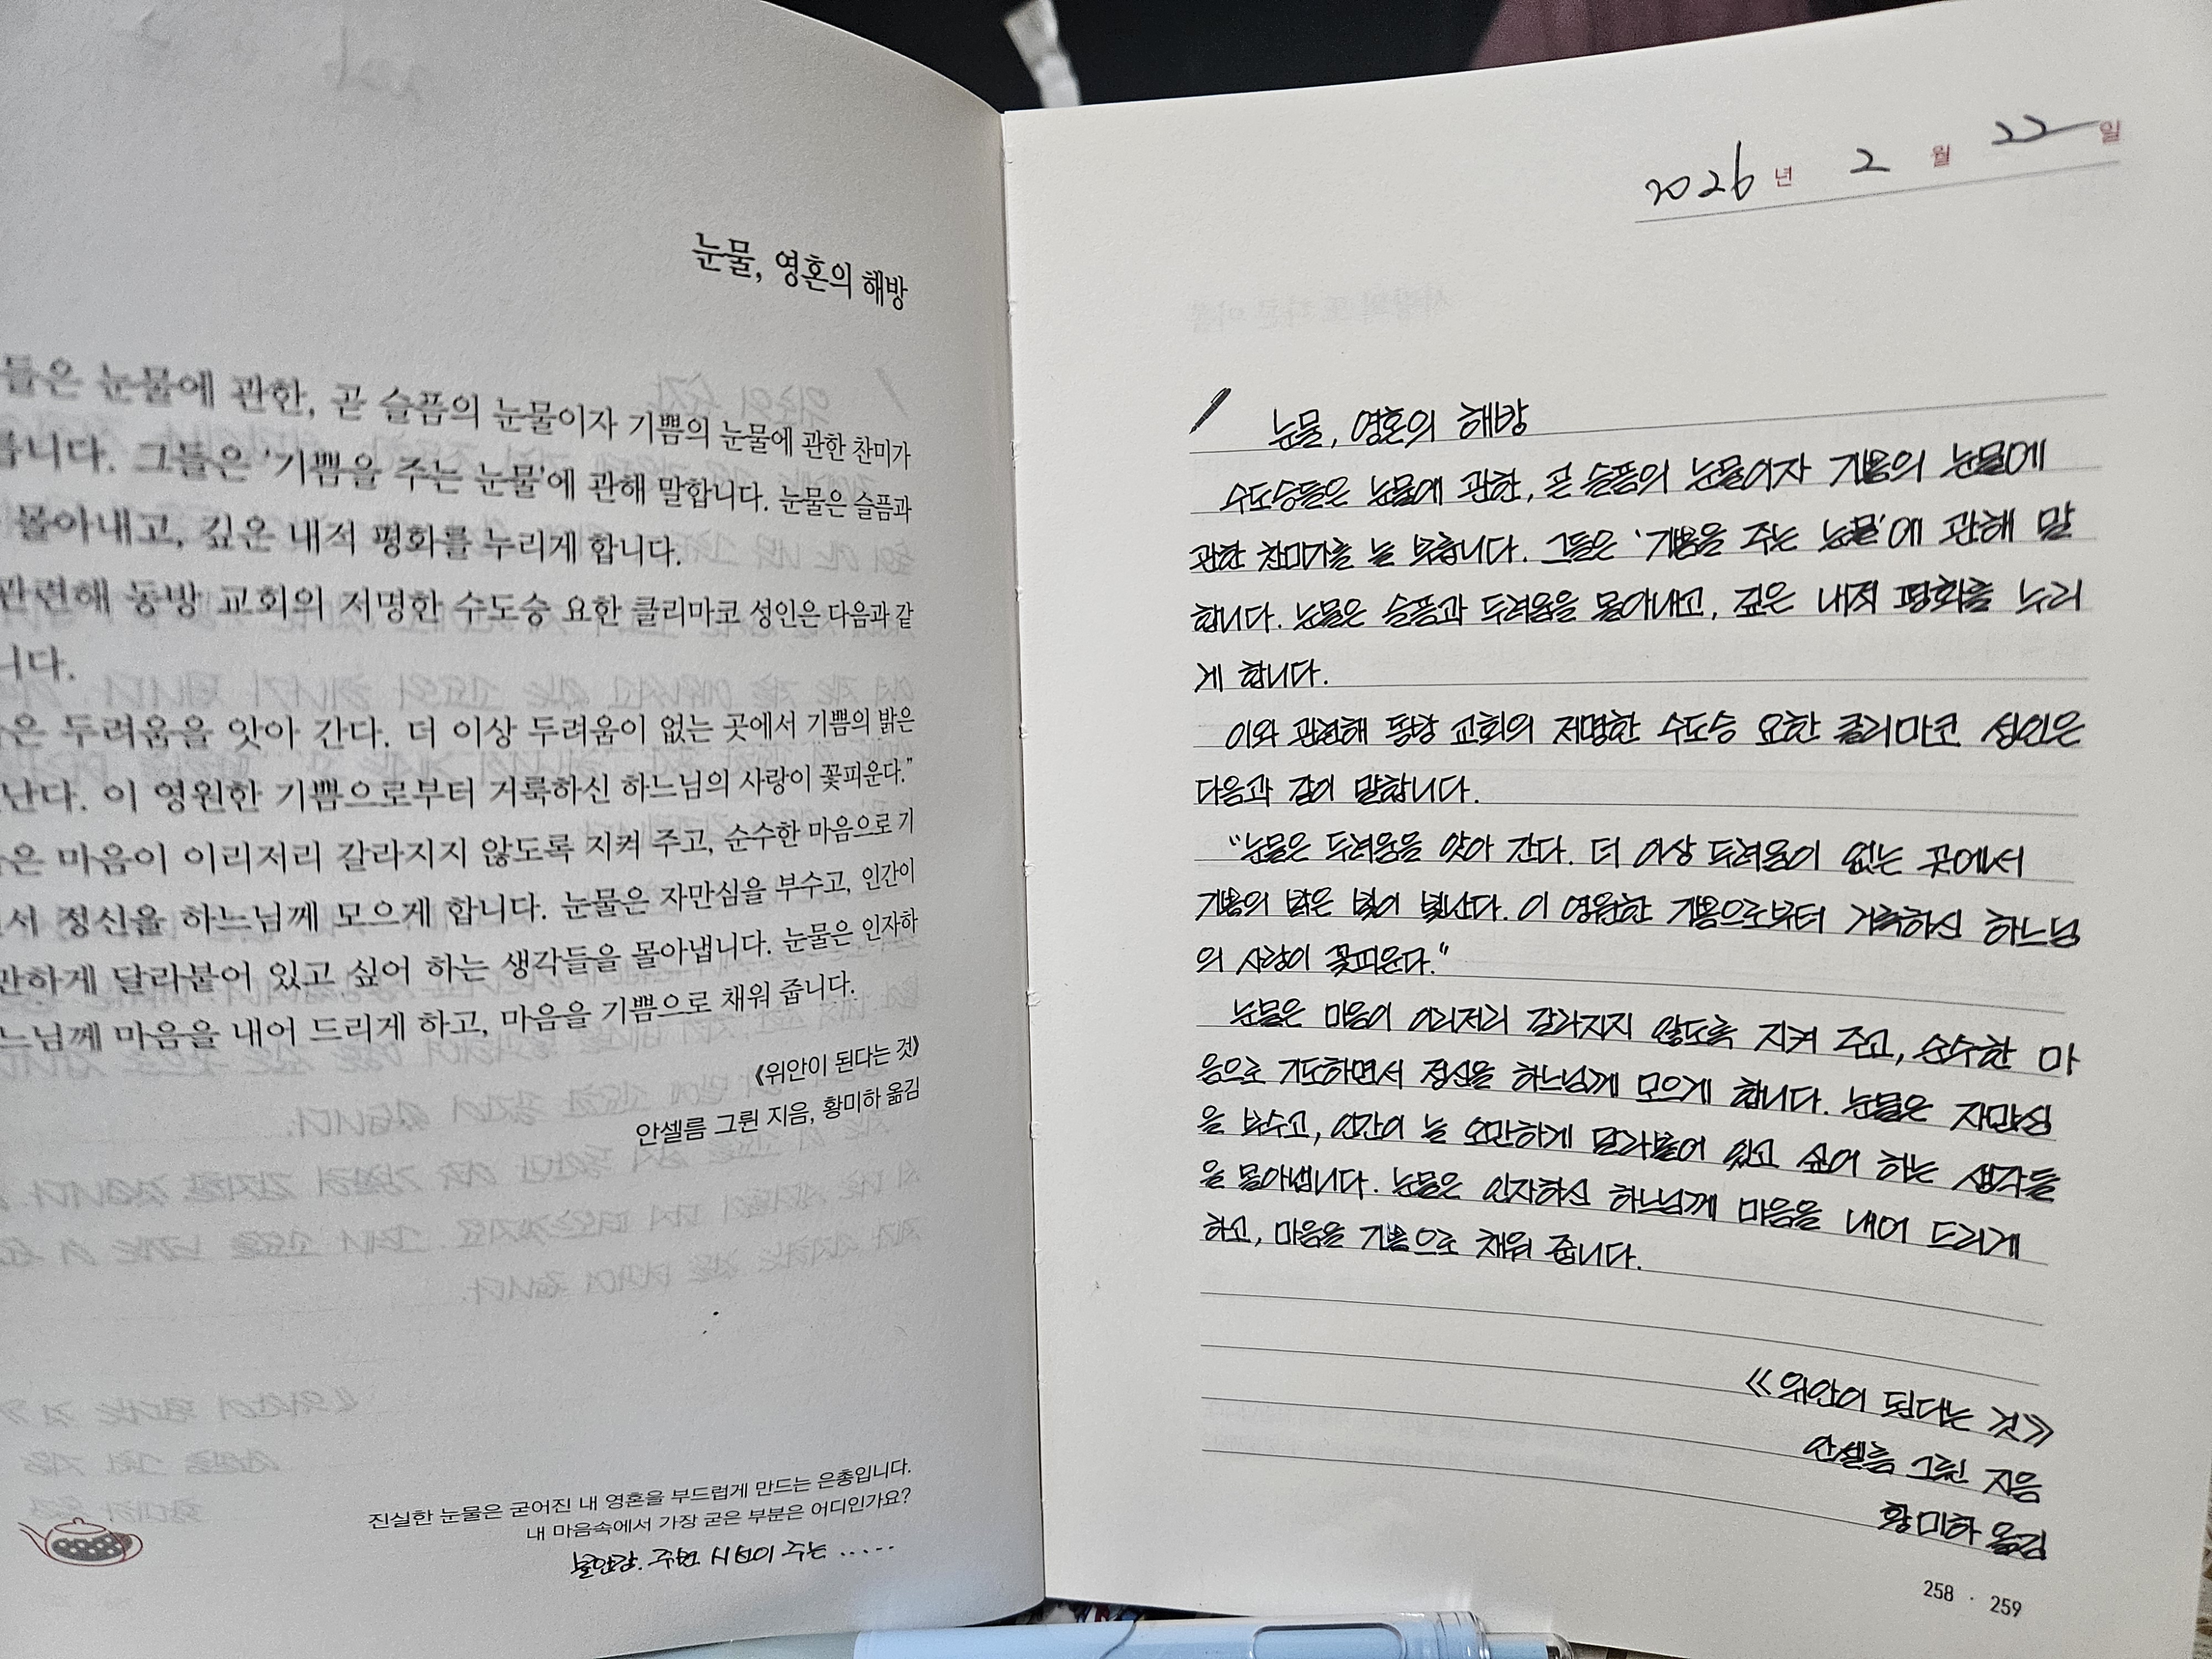 눈물, 영혼의 해방
들은 눈물에 관한, 곧 슬픔의 눈물이자 기쁨의 눈물에 관한 찬미가
니다. 그들은 '기쁨을 주는 눈물'에 관해 말합니다. 눈물은 슬픔과
몰아내고, 깊은 내적 평화를 누리게 합니다.
관련해 동방 교회의 저명한 수도승 요한 클리마코 성인은 다음과 같
니다.
은 두려움을 앗아 간다. 더 이상 두려움이 없는 곳에서 기쁨의 밝은
난다. 이 영원한 기쁨으로부터 거룩하신 하느님의 사랑이 꽃피운다."
은 마음이 이리저리 갈라지지 않도록 지켜 주고, 순수한 마음으로 기
서 정신을 하느님께 모으게 합니다. 눈물은 자만심을 부수고, 인간이
만하게 달라붙어 있고 싶어 하는 생각들을 몰아냅니다. 눈물은 인자하
느님께 마음을 내어 드리게 하고, 마음을 기쁨으로 채워 줍니다.
《위안이 된다는 것》
안셀름 그륀 지음, 황미하 옮김
진실한 눈물은 굳어진 내 영혼을 부드럽게 만드는 은총입니다.
내 마음속에서 가장 굳은 부분은 어디인가요?
불안감. 주변 시선이 주는 .....
2026 년 2 월 22 일
눈물, 영혼의 해방
수도승들은 눈물에 관한, 곧 슬픔의 눈물이자 기쁨의 눈물에
관한 찬미가를 늘 부릅니다. 그들은 '기쁨을 주는 눈물'에 관해 말
합니다. 눈물은 슬픔과 두려움을 몰아내고, 깊은 내적 평화를 누리
게 합니다.
이와 관련해 동방 교회의 저명한 수도승 요한 클리마코 성인은
다음과 같이 말합니다.
"눈물은 두려움을 앗아 간다. 더 이상 두려움이 없는 곳에서
기쁨의 밝은 빛이 빛난다. 이 영원한 기쁨으로부터 거룩하신 하느님
의 사랑이 꽃피운다."
눈물은 마음이 이리저리 갈라지지 않도록 지켜 주고, 순수한 마
음으로 기도하면서 정신을 하느님께 모으게 합니다. 눈물은 자만심
을 부수고, 인간이 늘 오만하게 달라붙어 있고 싶어 하는 생각들
을 몰아냅니다. 눈물은 인자하신 하느님께 마음을 내어 드리게
하고, 마음을 기쁨으로 채워 줍니다.
《위안이 된다는 것》
안셀름 그륀 지음
황미하 옮김
258 · 259